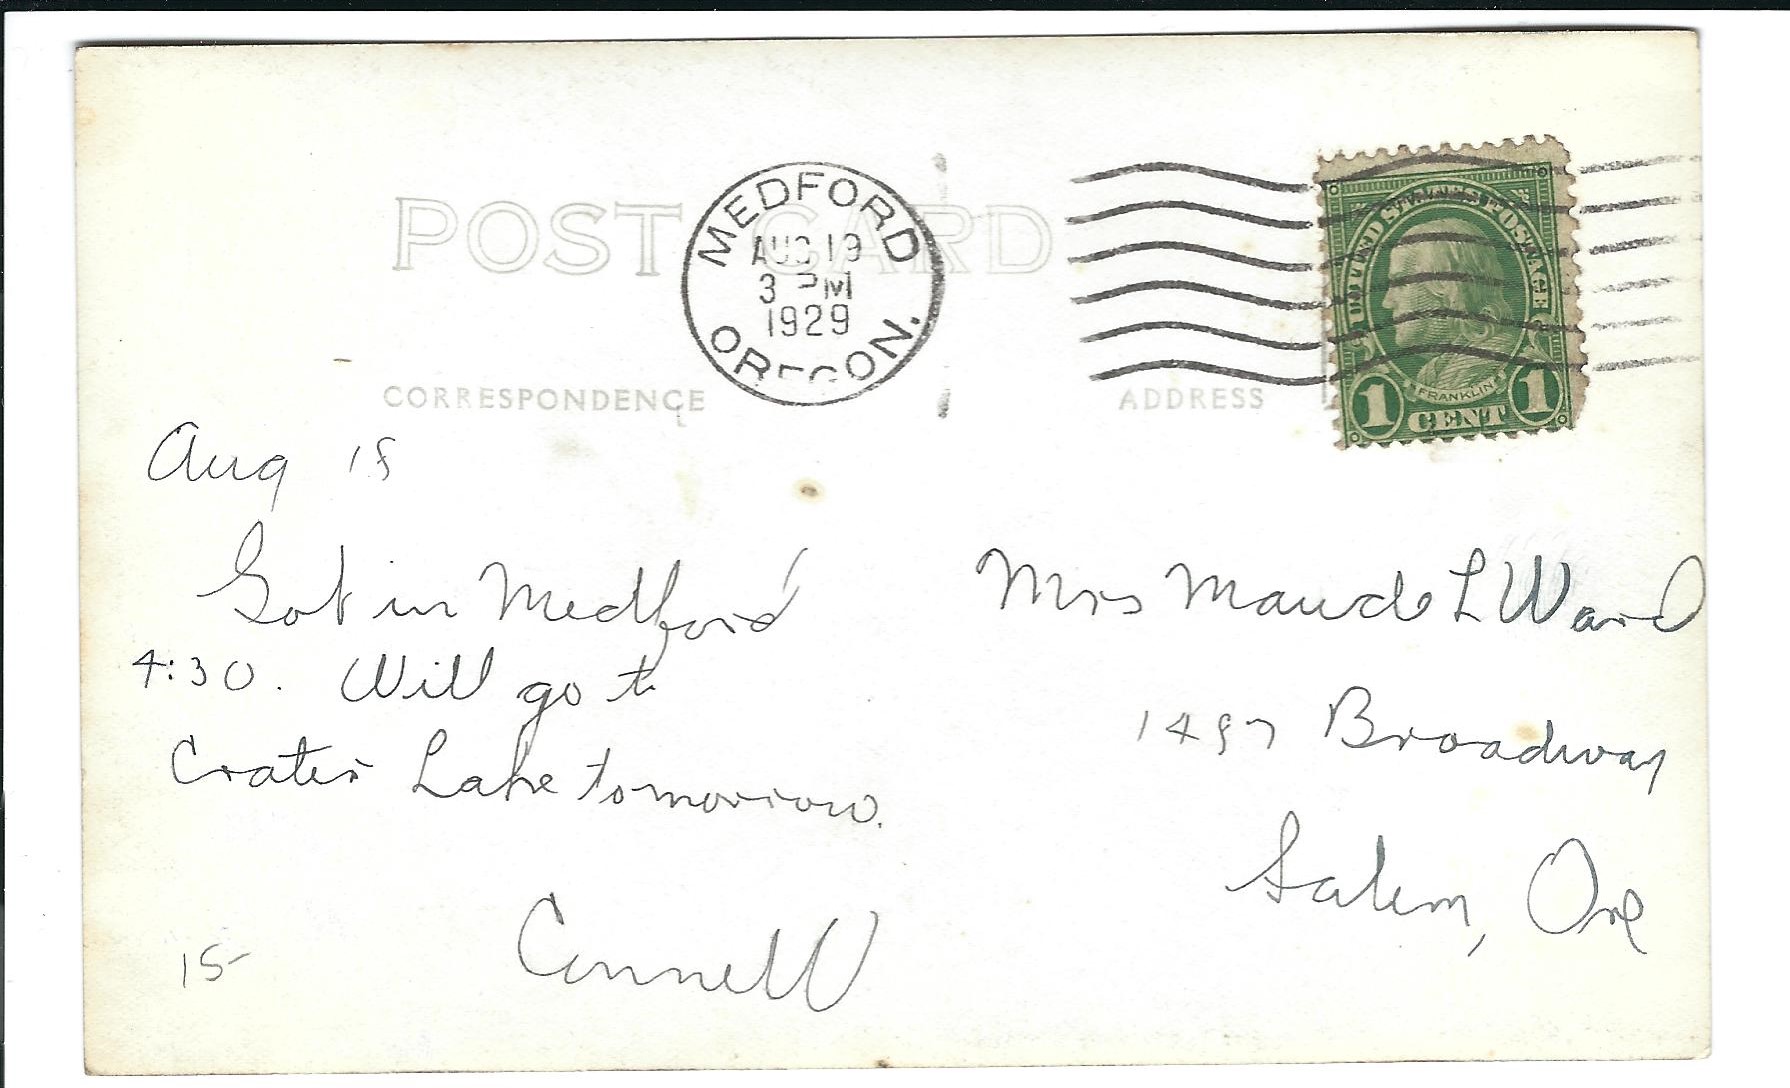 POST CARD
MEDFORD
AUG 19
3 PM
1929
OREGON.
UNITED STATES POSTAGE
FRANKLIN
1 CENT 1
CORRESPONDENCE
ADDRESS
Aug 18
Got in Medford
4:30. Will go to
Crater Lake tomorrow.
Mrs Maude L Ward
1497 Broadway
Salem, Ore
15